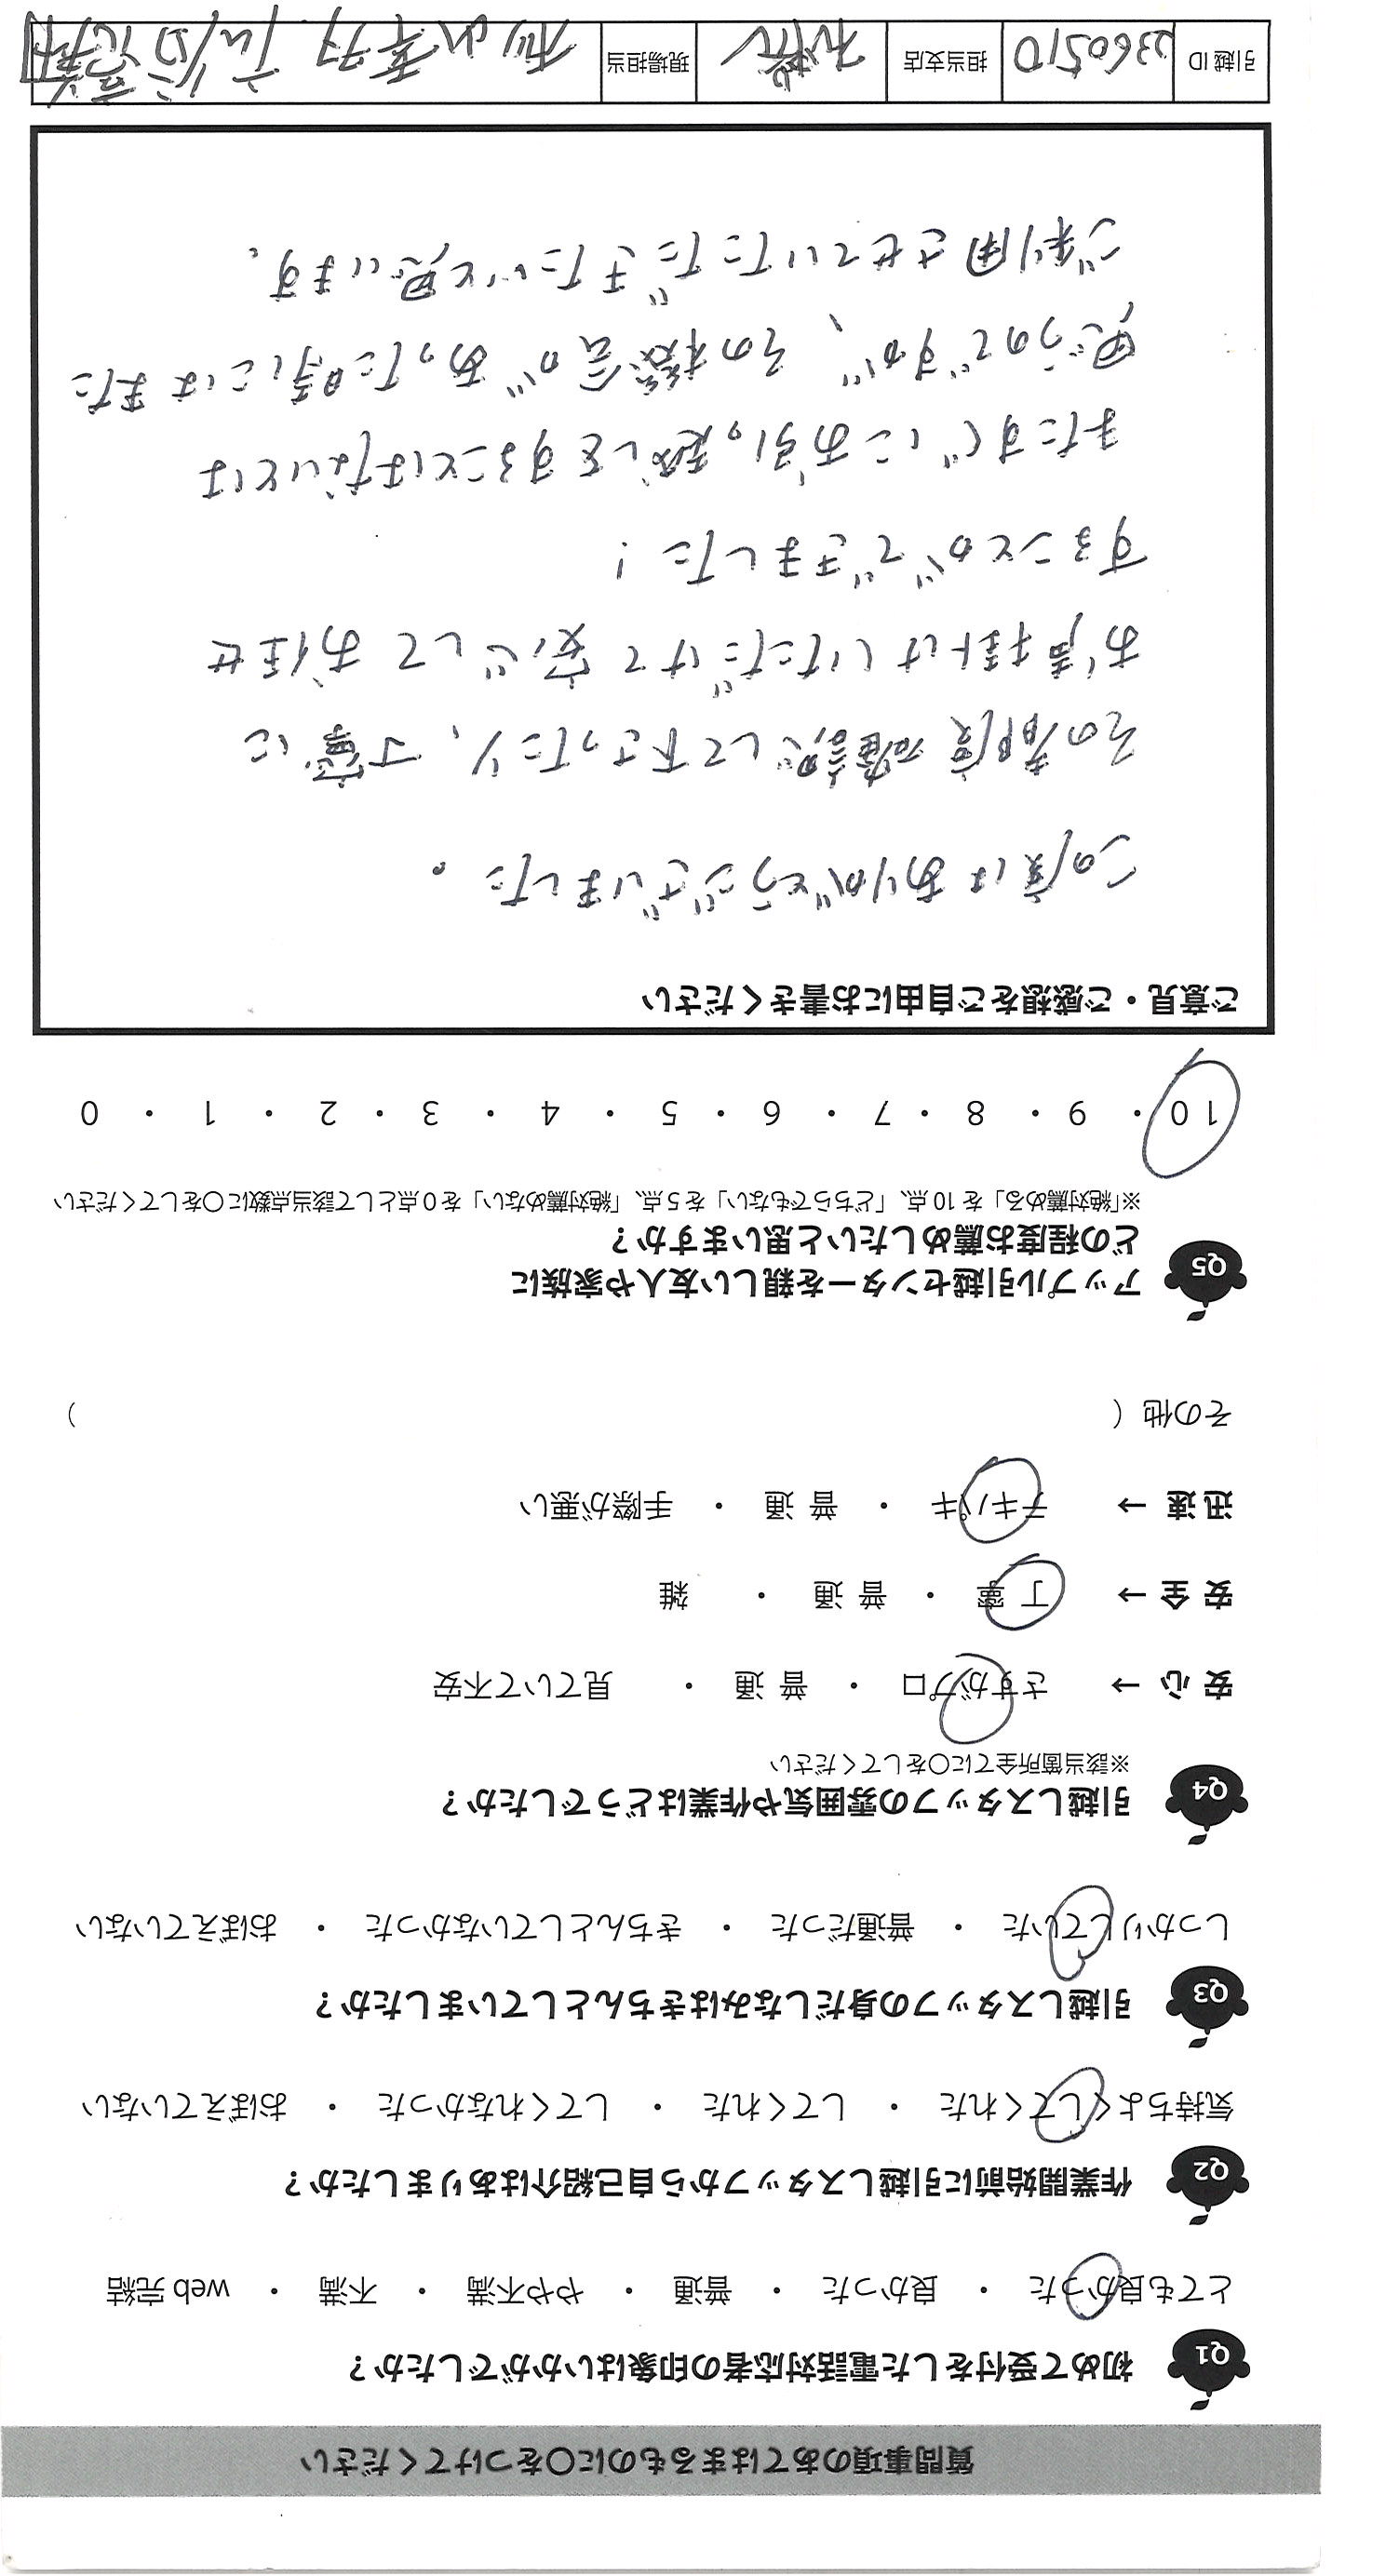 質問事項のあてはまるものに〇をつけてください
Q1 初めて受付をした電話対応者の印象はいかがでしたか？
とても良かった ・ 良かった ・ 普通 ・ やや不満 ・ 不満 ・ web 完結
Q2 作業開始前に引越しスタッフから自己紹介はありましたか？
気持ちよくしてくれた ・ してくれた ・ してくれなかった ・ おぼえていない
Q3 引越しスタッフの身だしなみはきちんとしていましたか？
しっかりしていた ・ 普通だった ・ きちんとしていなかった ・ おぼえていない
Q4 引越しスタッフの雰囲気や作業はどうでしたか？
※該当箇所全てに〇をしてください
安 心 → さすがプロ ・ 普 通 ・ 見ていて不安
安 全 → 丁 寧 ・ 普 通 ・ 雑
迅 速 → テキパキ ・ 普 通 ・ 手際が悪い
その他（ ）
Q5 アップル引越センターを親しい友人や家族に
どの程度お薦めしたいと思いますか？
※「絶対薦める」を 10 点、「どちらでもない」を 5 点、「絶対薦めない」を 0 点として該当点数に〇をしてください
10 ・ 9 ・ 8 ・ 7 ・ 6 ・ 5 ・ 4 ・ 3 ・ 2 ・ 1 ・ 0
ご意見・ご感想をご自由にお書きください
この度はありがとうございました。
その都度確認して下さったり、丁寧に
お声掛けいただけて安心してお任せ
することができました！
またすぐにお引っ越しをすることはないとは
思うのですが、その機会があった時にはまた
ご利用させていただきたいと思います。
引越 ID 2360510 担当支店 板橋 現場担当